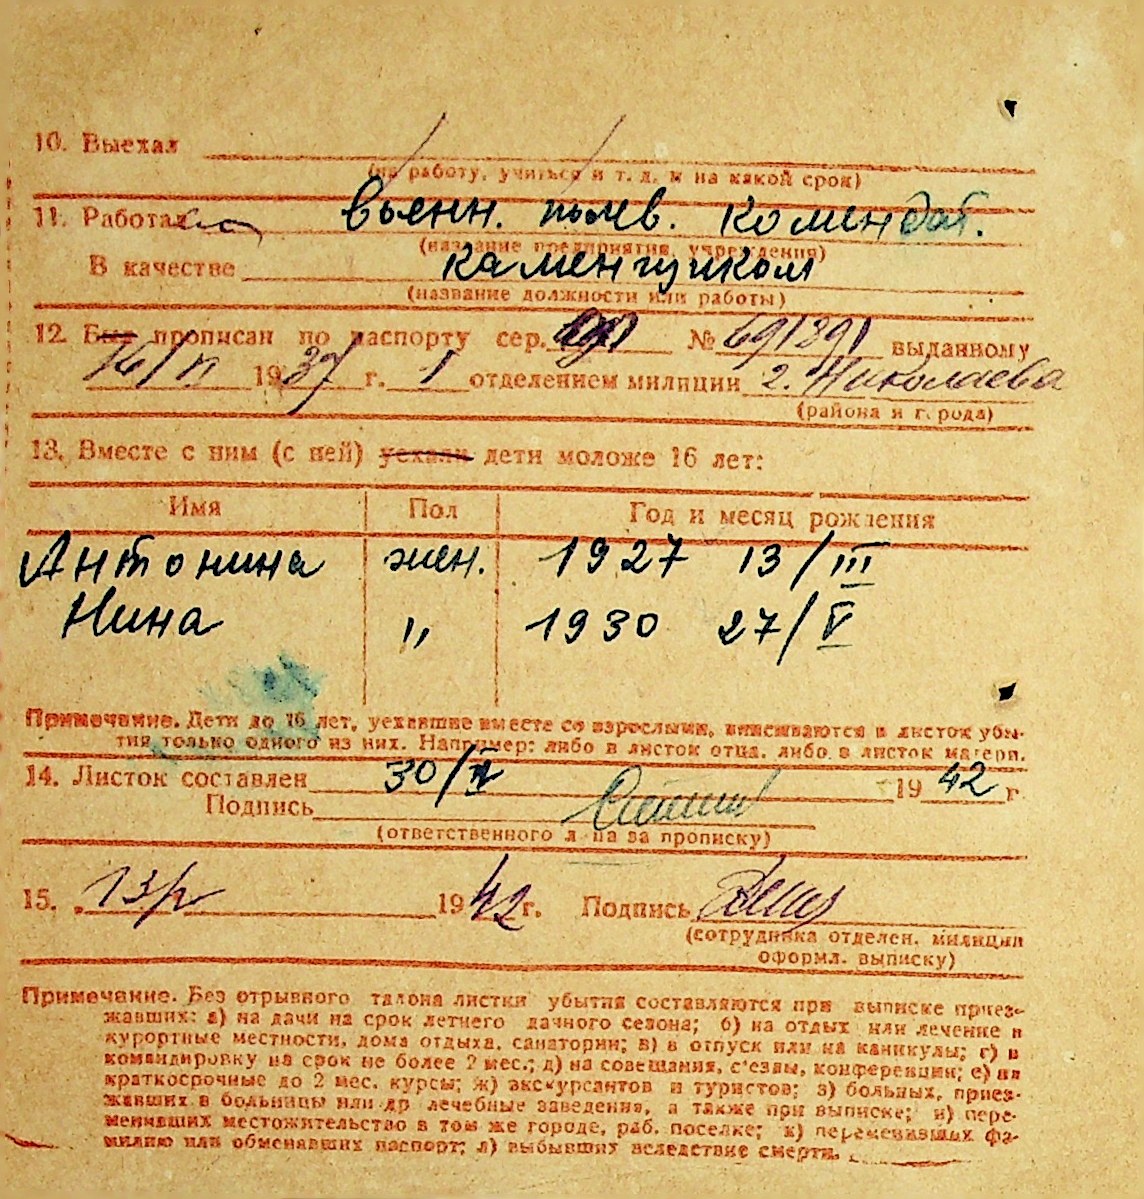 10. Выехал
(на работу, учиться и т. д. и на какой срок)
11. Работал военн. полев. комендат.
(название предприятия, учреждения)
В качестве каменщиком
(название должности или работы)
12. Был прописан по паспорту сер. № 691391 выданному
16/ 1937 г. 1 отделением милиции г. Николаева
(района и города)
13. Вместе с ним (с ней) уехали дети моложе 16 лет:
Имя Пол Год и месяц рождения
Антонина жен. 1927 13/III
Нина " 1930 27/V
Примечание. Дети до 16 лет, уехавшие вместе со взрослыми, вписываются в листок убы-
тия только одного из них. Например: либо в листок отца, либо в листок матери.
14. Листок составлен 30/ 1942 г.
Подпись
(ответственного лица за прописку)
15. 1942 г. Подпись
(сотрудника отделен. милиции
оформл. выписку)
Примечание. Без отрывного талона листки убытия составляются при выписке приез-
жавших: а) на дачи на срок летнего дачного сезона; б) на отдых или лечение в
курортные местности, дома отдыха, санатории; в) в отпуск или на каникулы; г) в
командировку на срок не более 2 мес.; д) на совещания, с'езды, конференции; е) на
краткосрочные до 2 мес. курсы; ж) экскурсантов и туристов; з) больных, приез-
жавших в больницы или др лечебные заведения, а также при выписке; и) пере-
менивших местожительство в том же городе, раб. поселке; к) переменивших фа-
милию или обменявших паспорт; л) выбывших вследствие смерти.